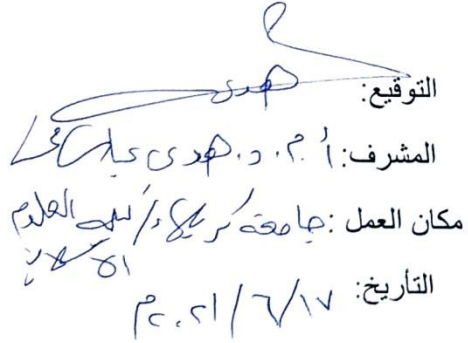 التوقيع: هدى
المشرف: أ.م.د. هدى عباس
مكان العمل: جامعة كربلاء/كلية العلوم
الاسلامية
التأريخ: ١٧/٦/٢٠٢١م